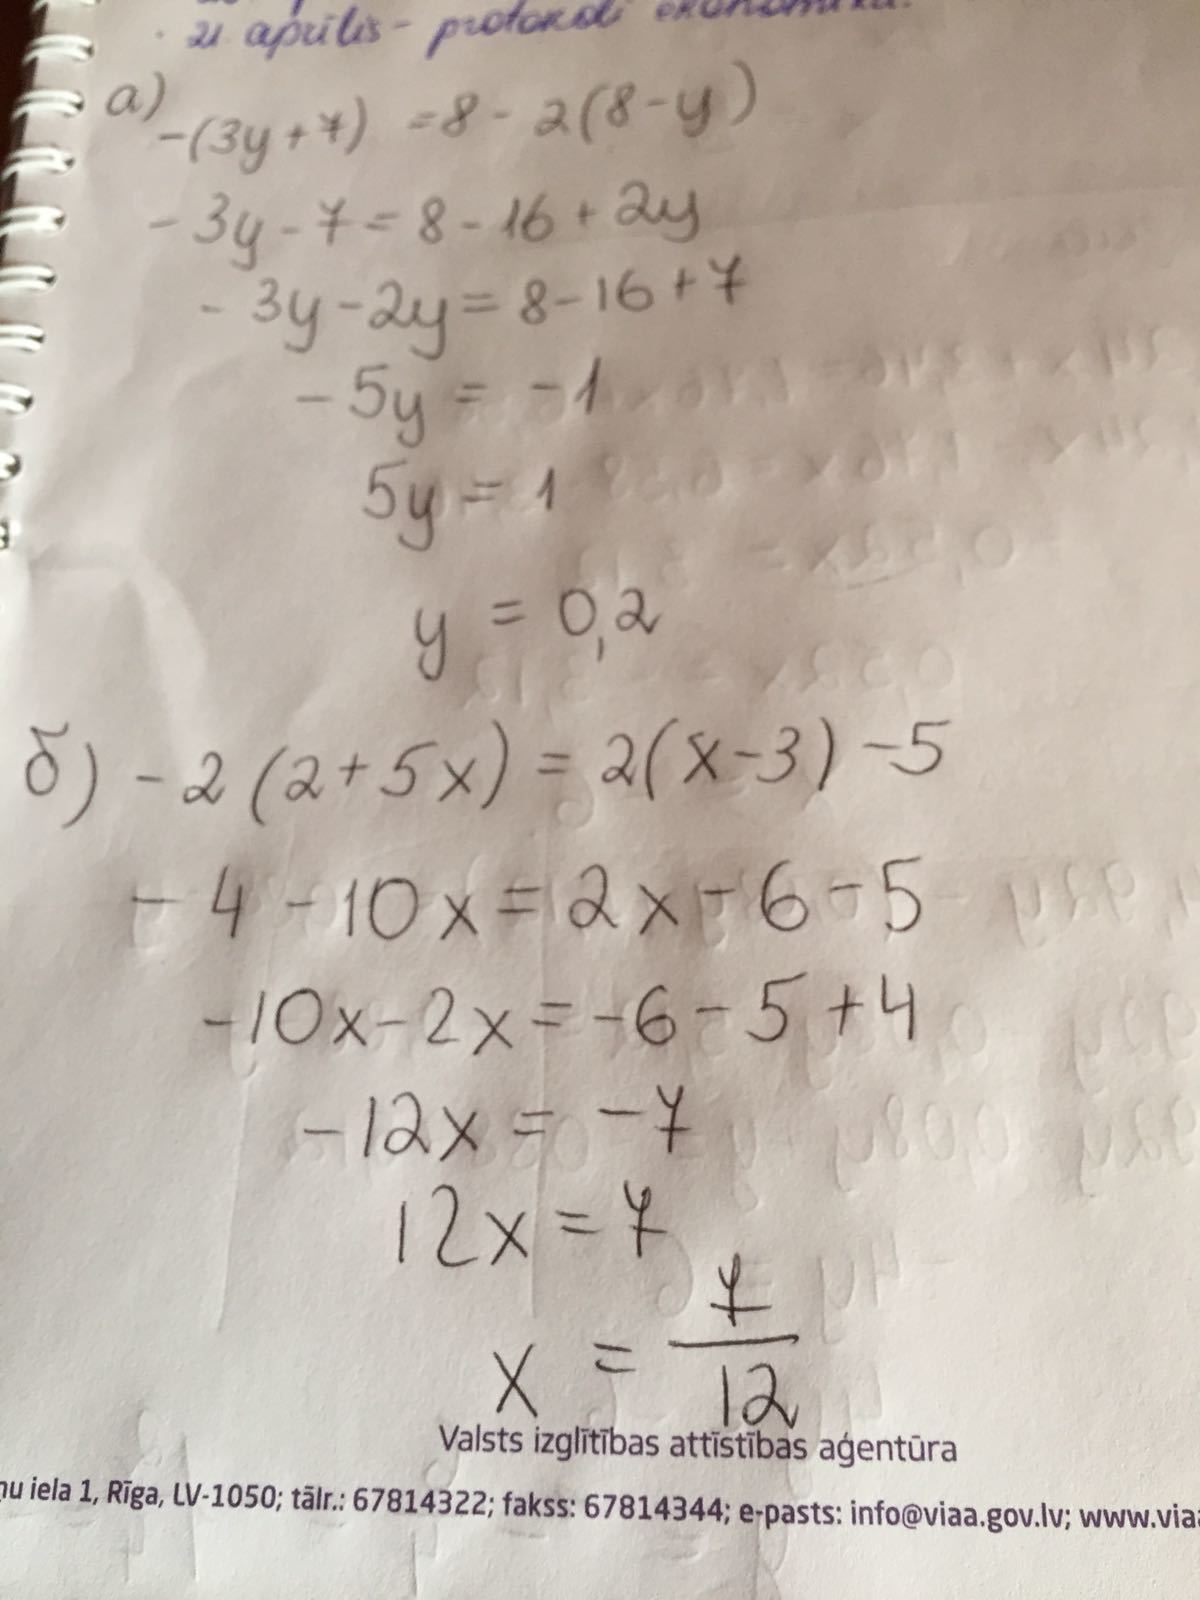 21 aprīlis - protokoli
a) -(3y+7) = 8 - 2(8-y)
-3y - 7 = 8 - 16 + 2y
-3y - 2y = 8 - 16 + 7
-5y = -1
5y = 1
y = 0,2
б) -2(2+5x) = 2(x-3) - 5
-4 - 10x = 2x - 6 - 5
-10x - 2x = -6 - 5 + 4
-12x = -7
12x = 7
x = 7/12
Valsts izglītības attīstības aģentūra
iela 1, Rīga, LV-1050; tālr.: 67814322; fakss: 67814344; e-pasts: info@viaa.gov.lv; www.via